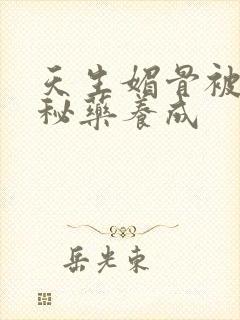 天生媚骨被
秘药养成
岳光东